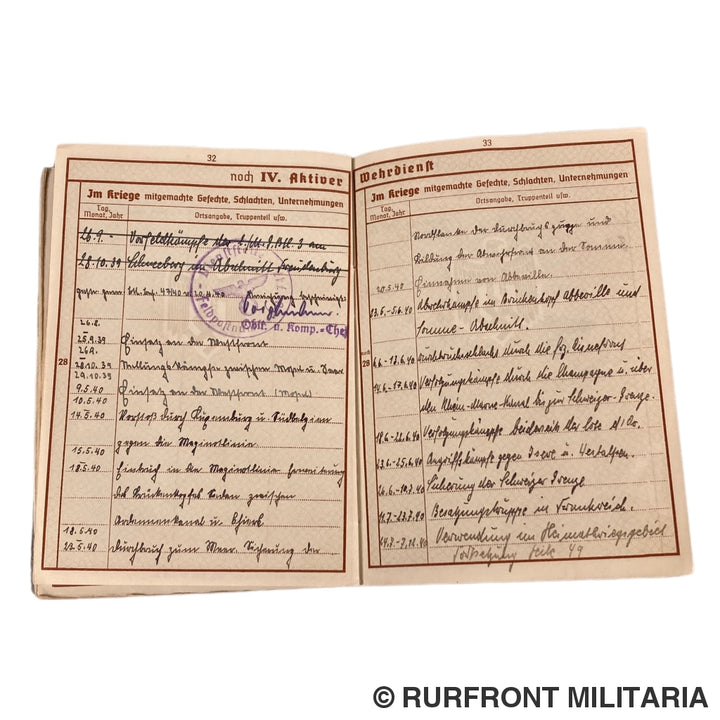 32
noch IV. Aktiver
Im Kriege mitgemachte Gefechte, Schlachten, Unternehmungen
Tag, Monat, Jahr
Ortsangabe, Truppenteil usw.
26.9.- Vorfeldkämpfe der
28.10.39 Schneeberg im Abschnitt
47/40
Feldpostn
Oblt. u. Komp.-Chef
26.8.
25.9.39 Einsatz an der Westfront
26.9.
28
28.10.39 Stellungskämpfe zwischen Mosel u.
29.10.39
9.5.40 Einsatz an der Westfront (Mosel)
10.5.40
14.5.40 Vorstoß durch Luxemburg u. Südbelgien
15.5.40 gegen die Maginotlinie
18.5.40 Einbruch in die Maginotlinie Erweiterung
des Brückenkopfes Sedan zwischen
Ardennenkanal u. Chiers
18.5.40
22.5.40 Durchbruch zum Meer. Sicherung der
33
Wehrdienst
Im Kriege mitgemachte Gefechte, Schlachten, Unternehmungen
Tag, Monat, Jahr
Ortsangabe, Truppenteil usw.
Nordflanke der und
Bildung der Abwehrfront an der Somme.
20.5.40 Einnahme von Abbeville.
23.5.-5.6.40 Abwehrkämpfe im Brückenkopf Abbeville und
Somme-Abschnitt.
28
6.6-13.6.40 Durchbruchsschlacht durch die frz.
14.6.-17.6.40 Verfolgungskämpfe durch die Champagne u. über
den Rhein-Marne-Kanal bis zur Schweizer-Grenze.
18.6-22.6.40 Verfolgungskämpfe beiderseits der
23.6.-25.6.40 Angriffskämpfe gegen Isere u.
26.6-10.7.40 Sicherung der Schweizer Grenze.
23.7.40 Besatzungstruppe in Frankreich.
40 Verwendung im Heimatkriegsgebiet
Fortsetzung Seite 49
© RURFRONT MILITARIA